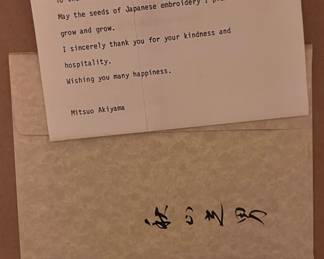 May the seeds of Japanese embroidery I
grow and grow.
I sincerely thank you for your kindness and
hospitality.
Wishing you many happiness.
Mitsuo Akiyama
秋山光男